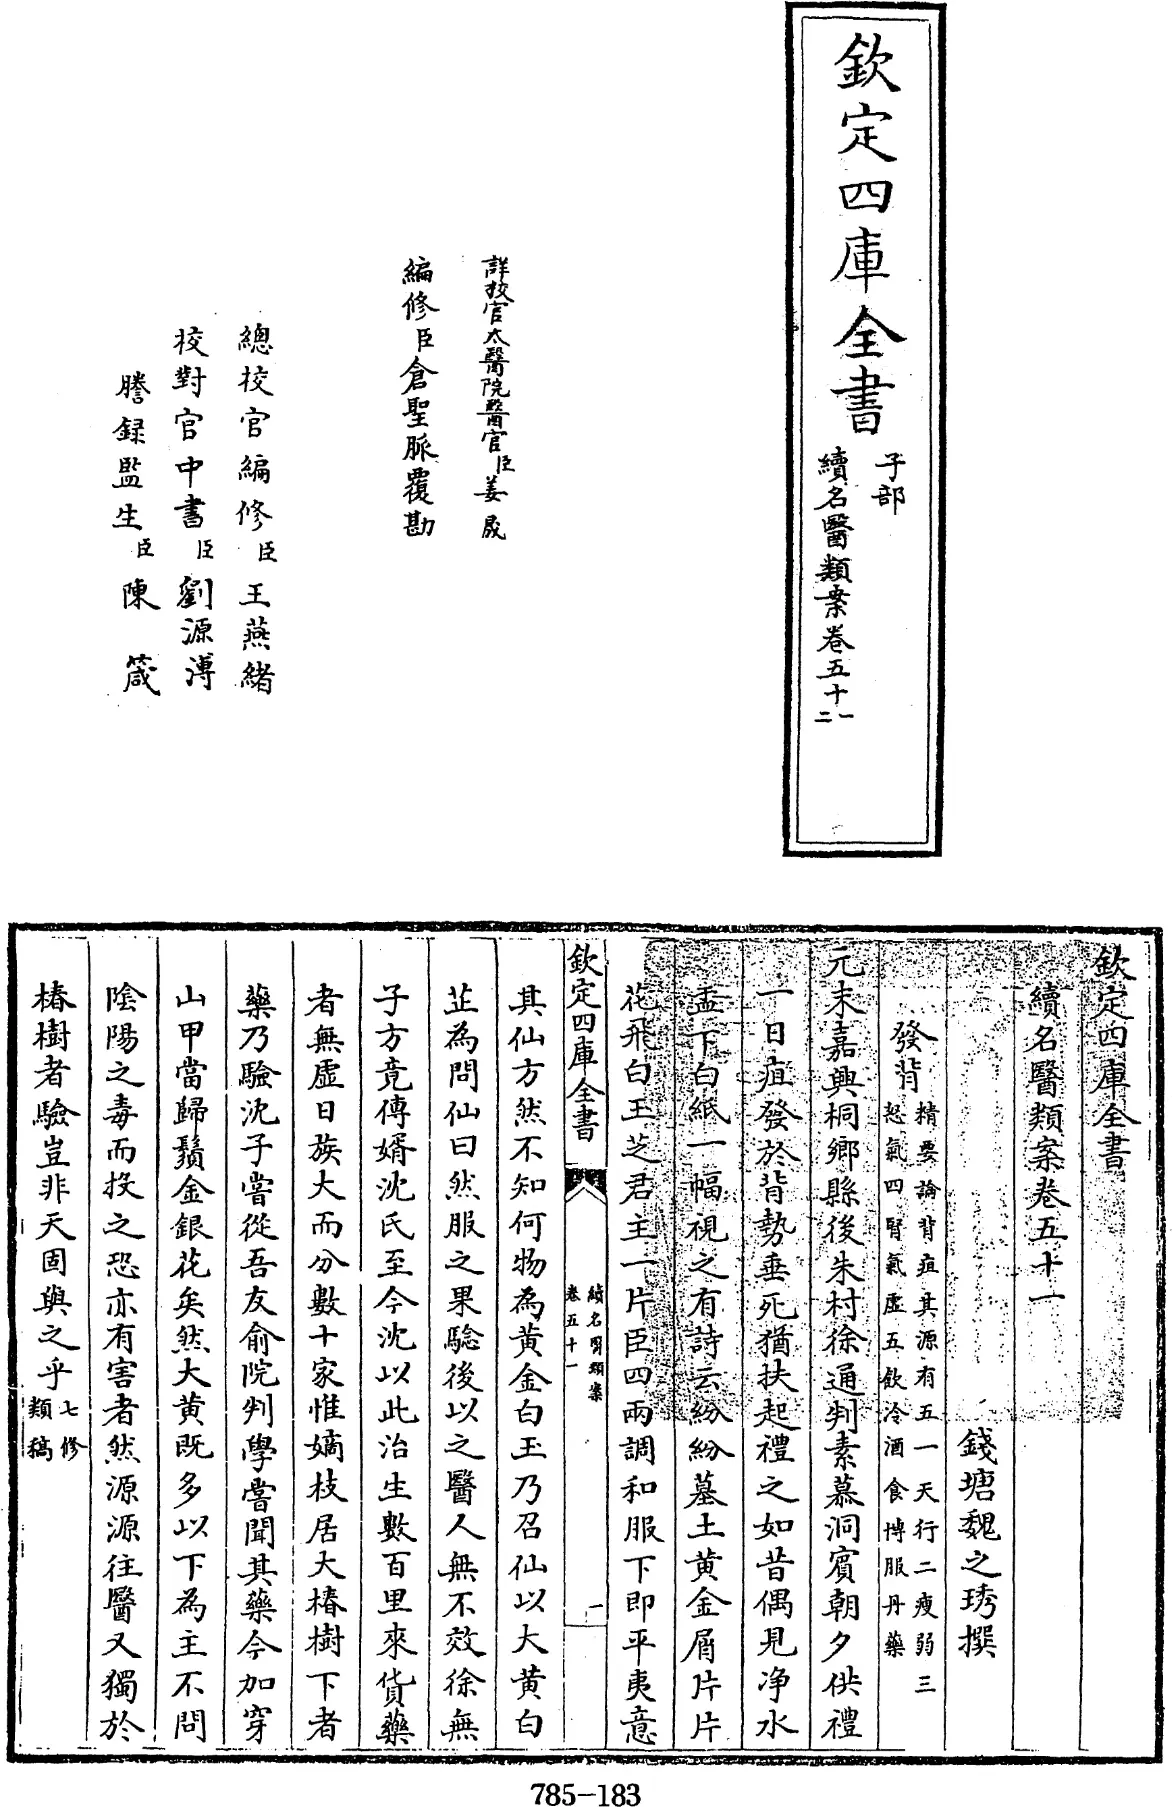 欽定四庫全書
子部
續名醫類案卷五十一
二
詳校官太醫院醫官臣姜晟
編修臣倉聖脈覆勘
總校官編修臣王燕緒
校對官中書臣劉源溥
謄録監生臣陳箴
欽定四庫全書
續名醫類案卷五十一
錢塘魏之琇撰
發背
精要論背疽其源有五一天行二瘦弱三
怒氣四腎氣虛五飲冷酒食煿服丹藥
元末嘉興桐鄉縣後朱村徐通判素慕洞賓朝夕供禮
一日疽發於背勢垂死猶扶起禮之如昔偶見净水
盂下白紙一幅視之有詩云紛紛墓土黄金屑片片
花飛白玉芝君主一片臣四兩調和服下即平夷意
欽定四庫全書
續名醫類案
卷五十一
一
其仙方然不知何物為黄金白玉乃召仙以大黄白
芷為問仙曰然服之果驗後以之醫人無不效徐無
子方竟傳婿沈氏至今沈以此治生數百里來貨藥
者無虛日族大而分數十家惟嫡枝居大椿樹下者
藥乃驗沈子嘗從吾友俞院判學嘗聞其藥今加穿
山甲當歸鬚金銀花矣然大黄既多以下為主不問
陰陽之毒而投之恐亦有害者然源源往醫又獨於
椿樹者驗豈非天固與之乎
七修
類稿
785-183